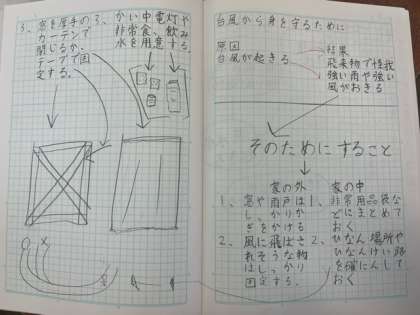 台風から身を守るために
原因
台風が起きる
結果
飛来物で怪我
強い雨や強い
風がおきる
そのためにすること
家の中
1、非常用品袋な
どにまとめて
おく
2、ひなん場所や
ひなんけい路
を確にんして
おく
家の外
1、窓や雨戸は
しっかりか
ぎをかける
2、風に飛ばさ
れそうな物
はしっかり
固定する。
3、かい中電灯や
非常食、飲み
水を用意する。
3、窓を厚手の
カーテンで
閉じるか、
テープで固
定する。